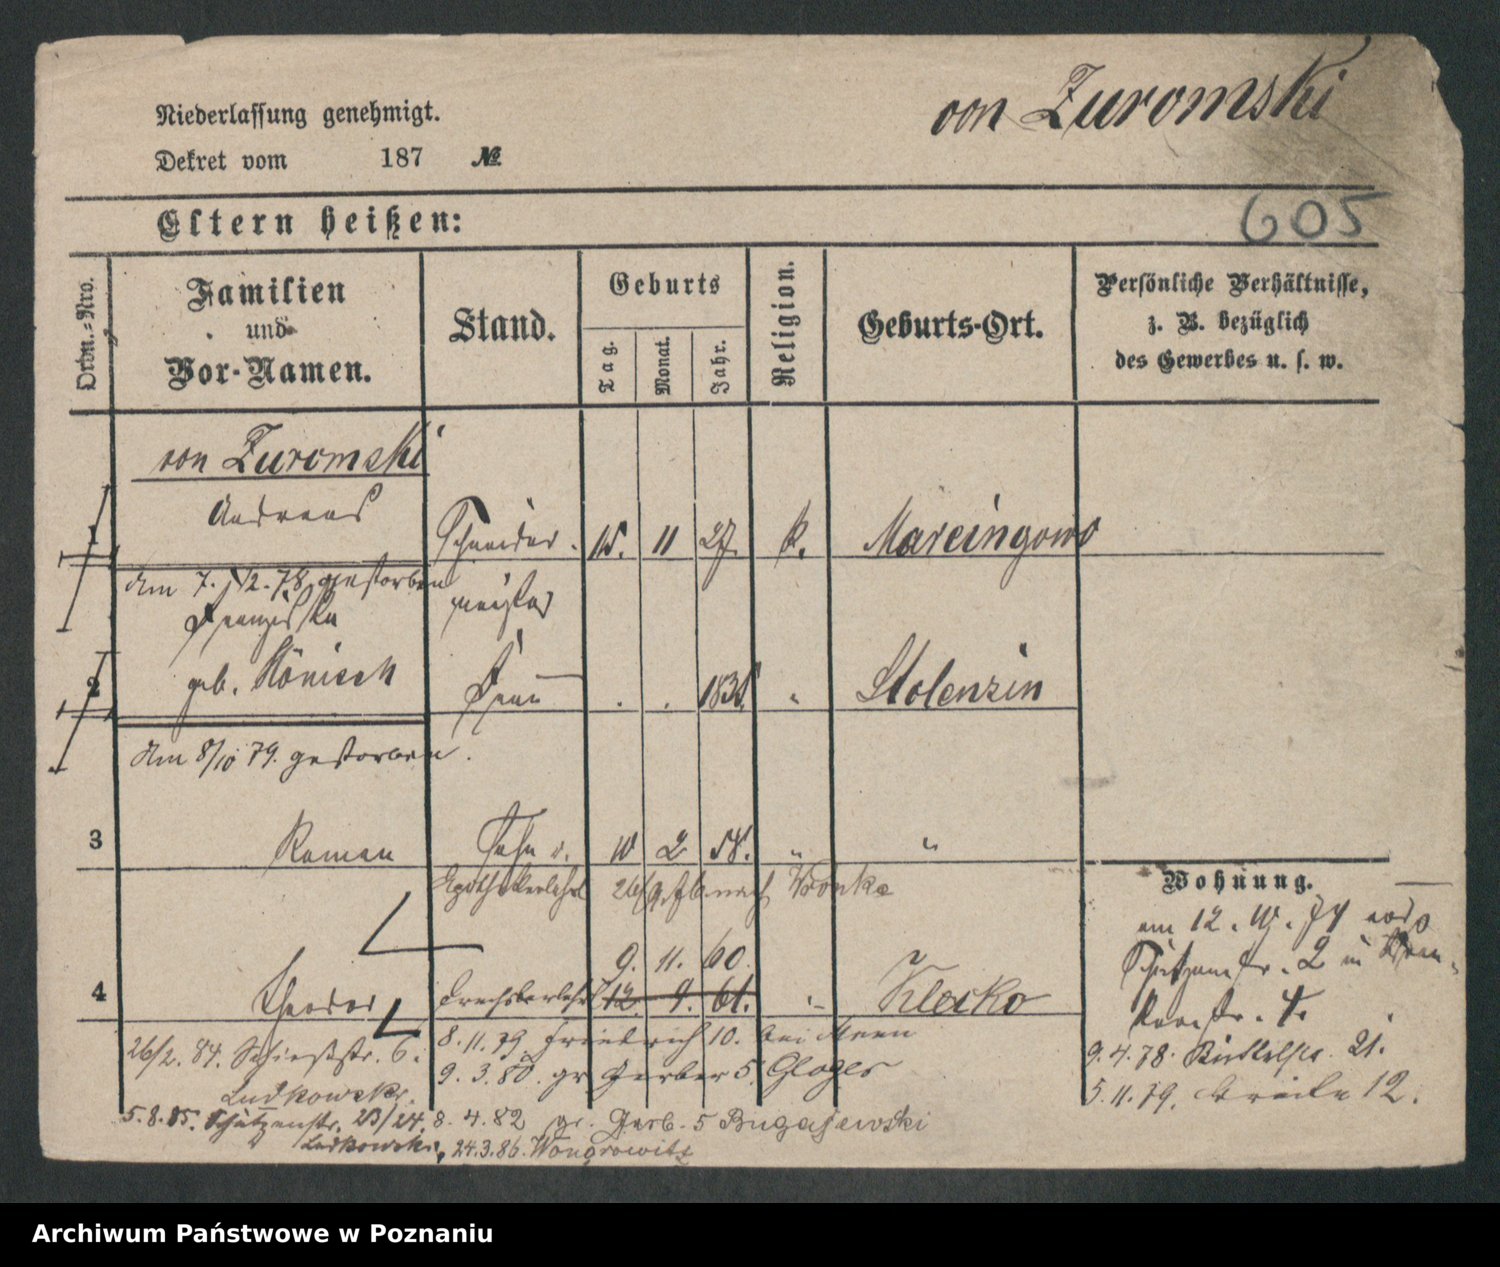 von Zuromski
Niederlassung genehmigt.
Dekret vom 187 №
Eltern heißen:
605
Ordn.-Nro.
Familien
und
Vor-Namen.
Stand.
Geburts
Tag.
Monat.
Jahr.
Religion.
Geburts-Ort.
Persönliche Verhältnisse,
z. B. bezüglich
des Gewerbes u. s. w.
von Zuromski
1 Andreas Schneider. 15. 11 27. k. Marcingowo
Am 7. 12. 78 gestorben meister
Franziska
2 geb. Hönisch Frau . . 183 " Stolenzin
Am 8/10 79. gestorben.
3 Roman Sohn 10 2 58. " "
Apothekerlehrl 26/9.76 nach Wronke
Wohnung.
am 12. 74
Schützenstr. 2 in
9. 11. 60.
4 Theodor Drechslerlehrl 12. 9. 61. " Klecko
str. 4.
26/2. 84. Schießstr. 6. 8. 11. 79 Friedrich 10. bei
9. 4. 78. 21.
Ludkowski. 9. 3. 80. gr Gerber 5. Gloger
5. 11. 79. Breite 12.
5. 8. 85. Schützenstr. 23/24. 8. 4. 82 gr. Gerb. 5 Bugajewski
Ludkowski, 24.3.86. Wongrowitz
Archiwum Państwowe w Poznaniu